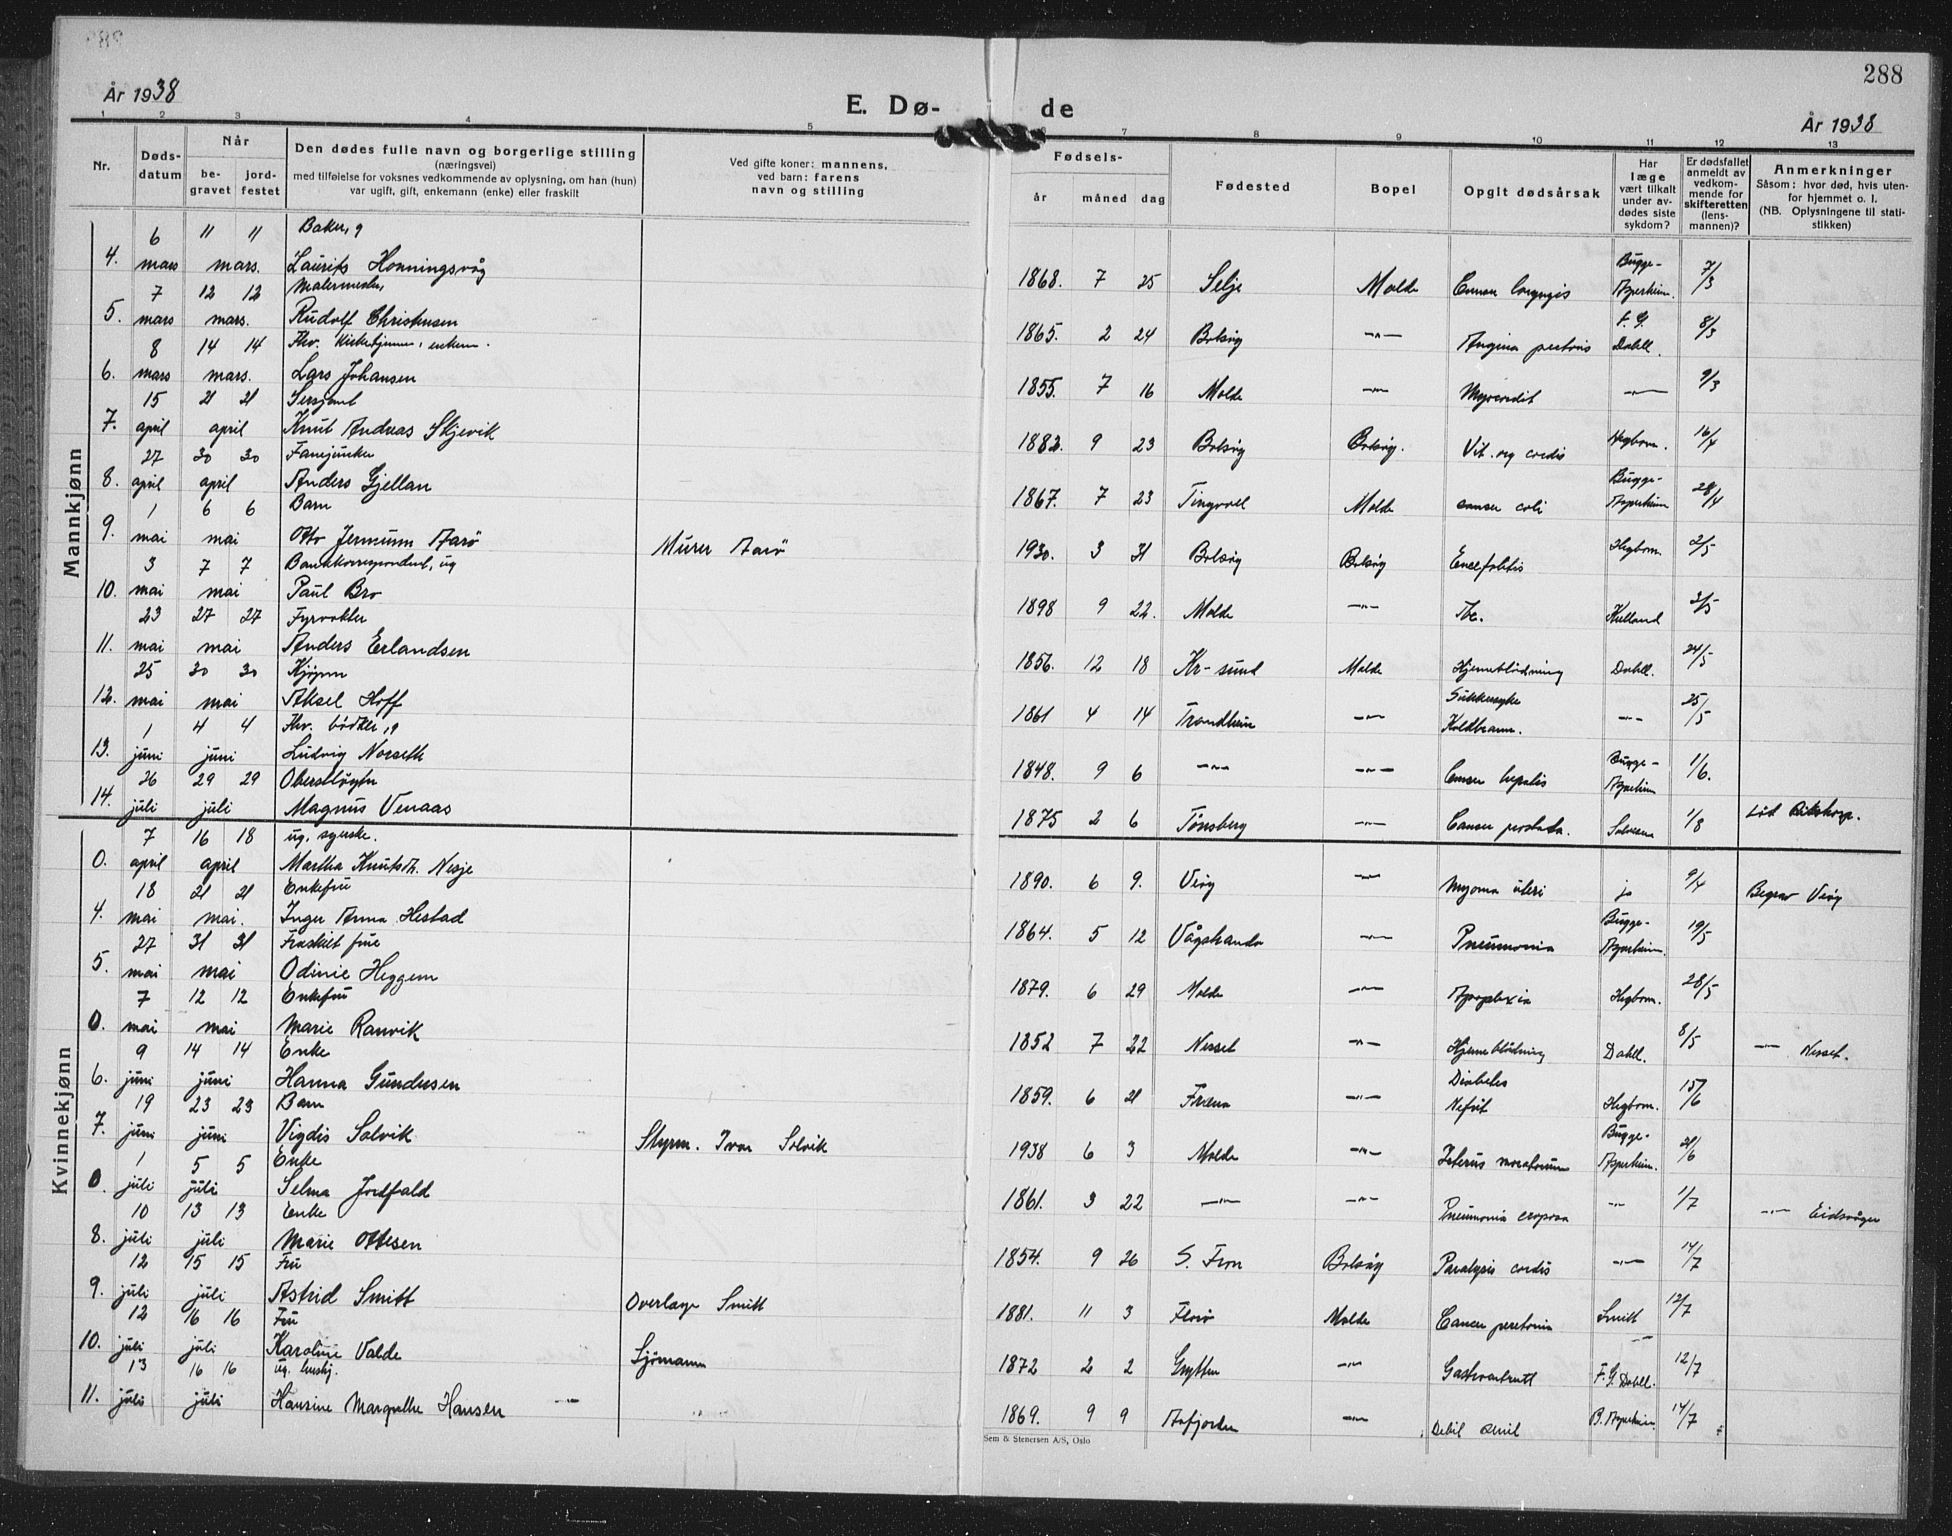 288
År 1938
E. Dø-
de
År 1938
1 2 3 4 5 6 7 8 9 10 11 12 13
Nr.
Døds-
datum
Når
be-
gravet
jord-
festet
Den dødes fulle navn og borgerlige stilling
(næringsvei)
med tilføielse for voksnes vedkommende av oplysning, om han (hun)
var ugift, gift, enkemann (enke) eller fraskilt
Ved gifte koner: mannens,
ved barn: farens
navn og stilling
Fødsels-
år måned dag
Fødested
Bopel
Opgit dødsårsak
Har
læge
vært tilkalt
under av-
dødes siste
sykdom?
Er dødsfallet
anmeldt av
vedkom-
mende for
skifteretten
(lens-
mannen)?
Anmerkninger
Såsom: hvor død, hvis uten-
for hjemmet o. l.
(NB. Oplysningene til stati-
stikken)
Mannkjønn
6 11 11 Baker, g
4. mars mars. Laurits Honningsvåg 1868. 7 25 Selje Molde Bugge- Asperheim. 7/3
7 12 12 Malermester,
5. mars mars. Rudolf Christensen 1865. 2 24 Bolsøy -"- Angina pectoris F. G. Dahll. 8/3
8 14 14 Fhv. kirketjener, enkem.
6. mars mars. Lars Johansen 1855. 7 16 Molde -"- Myocardit -"- 9/3
15 21 21 Sersjant
7. april april Knut Andreas Skjevik 1882. 9 23 Bolsøy Bolsøy. Vit. org cordis Hegbom. 16/4
27 30 30 Fanejunker
8. april april Anders Gjellan 1867. 7 23 Tingvoll Molde cancer coli Bugge- Asperheim 28/4
1 6 6 Barn
9. mai mai Otto Jermunn Aarø Murer Aarø 1930. 3 31 Bolsøy Bolsøy Encefalitis Hegbom. 2/5
3 7 7 Bankkorrespondent, ug
10. mai mai Paul Bro 1898 9 22. Molde -"- Tbc. Kulland 3/5
23 27 27 Fyrvokter
11. mai mai Anders Erlandsen 1856. 12 18 Kr-sund Molde Hjerneblødning Dahll. 24/5
25 30 30 Kjøpm
12. mai mai Aksel Hoff 1861 4 14 Trondheim -"- Sukkersyke Koldbrann. -"- 25/5
1 4 4 Fhv. bødker, g
13. juni juni Ludvig Norseth 1848. 9 6 -"- -"- Cancer hepatis Bugge- Asperheim 1/6.
26 29 29 Oberstløytn
14. juli juli Magnus Venaas 1875 2 6 Tönsberg -"- Cancer prostata. 1/8
Kvinnekjønn
7 16 18 ug. syerske.
0. april april Martha Knutsdt. Nesje 1890. 6 9. Veøy -"- Myoma uteri ja 9/4 Begrav Veøy
18 21 21 Enkefru
4. mai mai. Inger Anna Hestad 1864. 5 12 Vågstranda -"- Pneumonia Bugge- Asperheim. 19/5
27 31 31 Fraskilt frue
5. mai mai Odinie Heggem 1879. 6 29 Molde -"- Apoplexia Hegbom. 28/5
7 12 12 Enkefru
0. mai mai Marie Ranvik 1852 7 22 Nesset -"- Hjerneblødning Dahll. 8/5 -"- Nesset.
9 14 14 Enke
6. juni juni Hanna Gundersen 1859. 6 21 Fræna -"- Diabetes Nefrit Hegbom. 15/6
19 23 23 Barn
7. juni juni Vigdis Solvik Styrm. Ivar Solvik 1938 6 3 Molde -"- Icterus neonatorum Bugge- Asperheim. 21/6
1 5 5 Enke
0. juli juli Selma Jordfald 1861. 3 22 -"- -"- Pneumonia crouposa -"- 1/7 -"- Eidsvågen
10 13 13 Enke
8. juli juli Marie Ottesen 1854. 9 26 S. Fron Bolsøy Paralysis cordis -"- 14/7
12 15 15 Fru
9. juli juli Astrid Smitt Overlæge Smitt 1881. 11 3 Florø Molde Cancer peretonia Smitt 12/7
12 16 16 Fru
10. juli juli Karoline Valde Sjømann 1872 2 2 Grytten -"- F. G. Dahll. 12/7
13 16 16 ug. hushj.
11. juli juli Hansine Margrethe Hansen -"- 1869. 9 9 Aafjorden -"- Debil senil B. Asperheim. 14/7
Sem & Stenersen A/S, Oslo